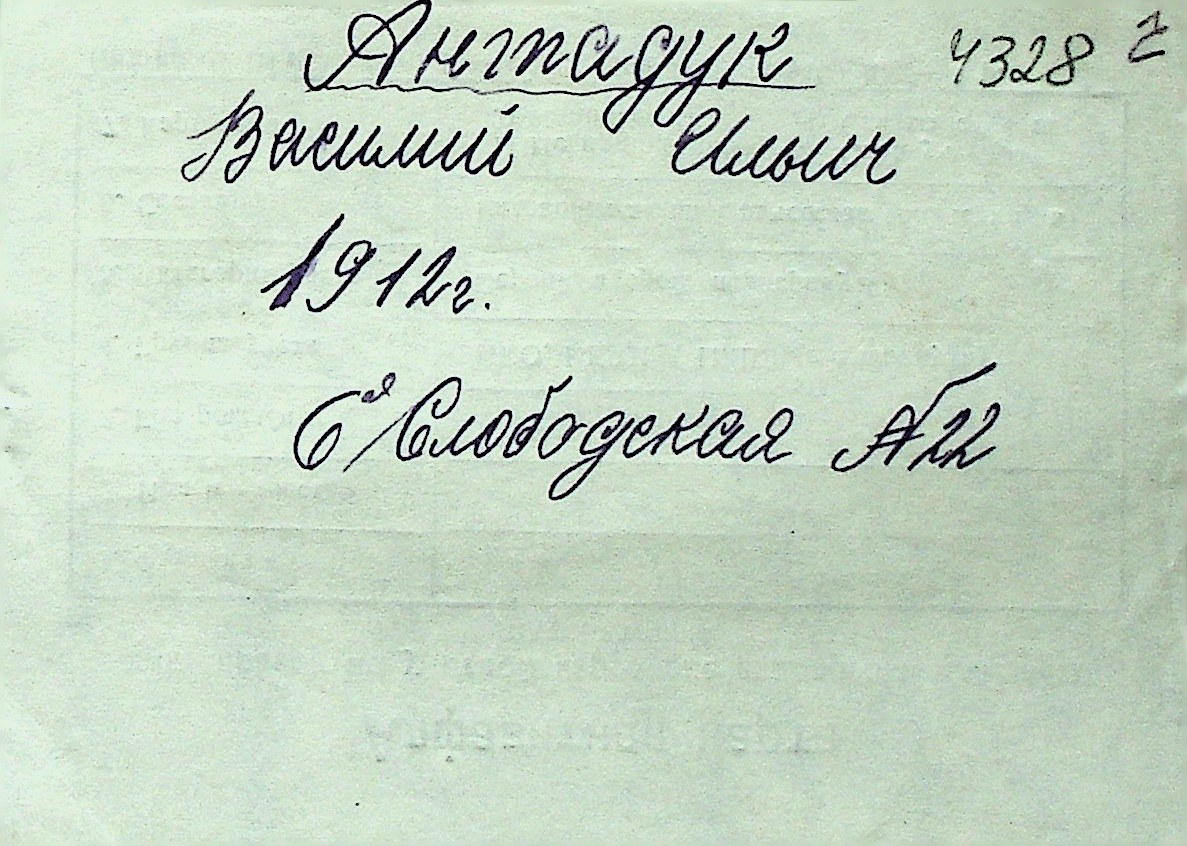 Антадук 4328 г
Василий Ильич
1912г.
6я Слободская №22